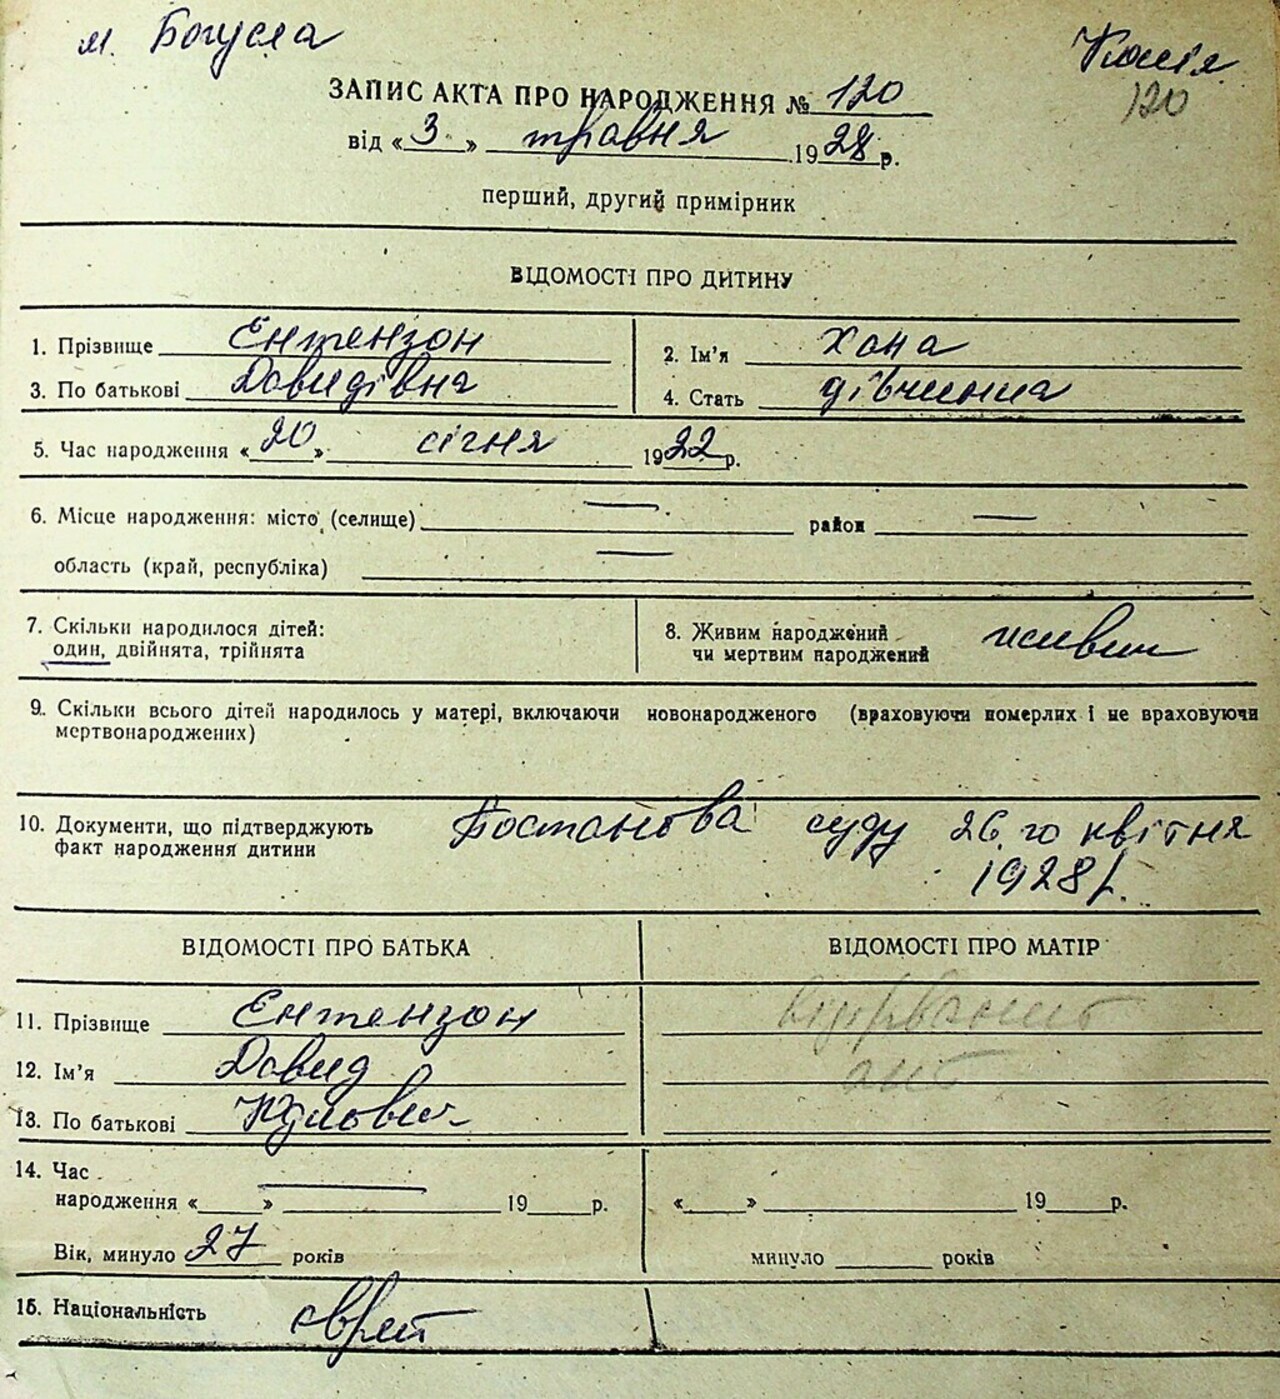 м. Богусла
Копія
ЗАПИС АКТА ПРО НАРОДЖЕННЯ № 120
120
від « 3 » травня 1928 р.
перший, другий примірник
ВІДОМОСТІ ПРО ДИТИНУ
1. Прізвище Ентензон
2. Ім'я Хана
3. По батькові Давидівна
4. Стать дівчинна
5. Час народження « 20 » січня 1922 р.
6. Місце народження: місто (селище) — район —
область (край, республіка) —
7. Скільки народилося дітей:
один, двійнята, трійнята
8. Живим народжений
чи мертвим народжений живим
9. Скільки всього дітей народилось у матері, включаючи новонародженого (враховуючи померлих і не враховуючи
мертвонароджених)
10. Документи, що підтверджують
факт народження дитини Постанова суду 26 го квітня
1928 р.
ВІДОМОСТІ ПРО БАТЬКА
ВІДОМОСТІ ПРО МАТІР
11. Прізвище Ентензон
12. Ім'я Давид
13. По батькові
14. Час
народження « » — 19 р.
« » 19 р.
Вік, минуло 27 років
минуло років
15. Національність єврей